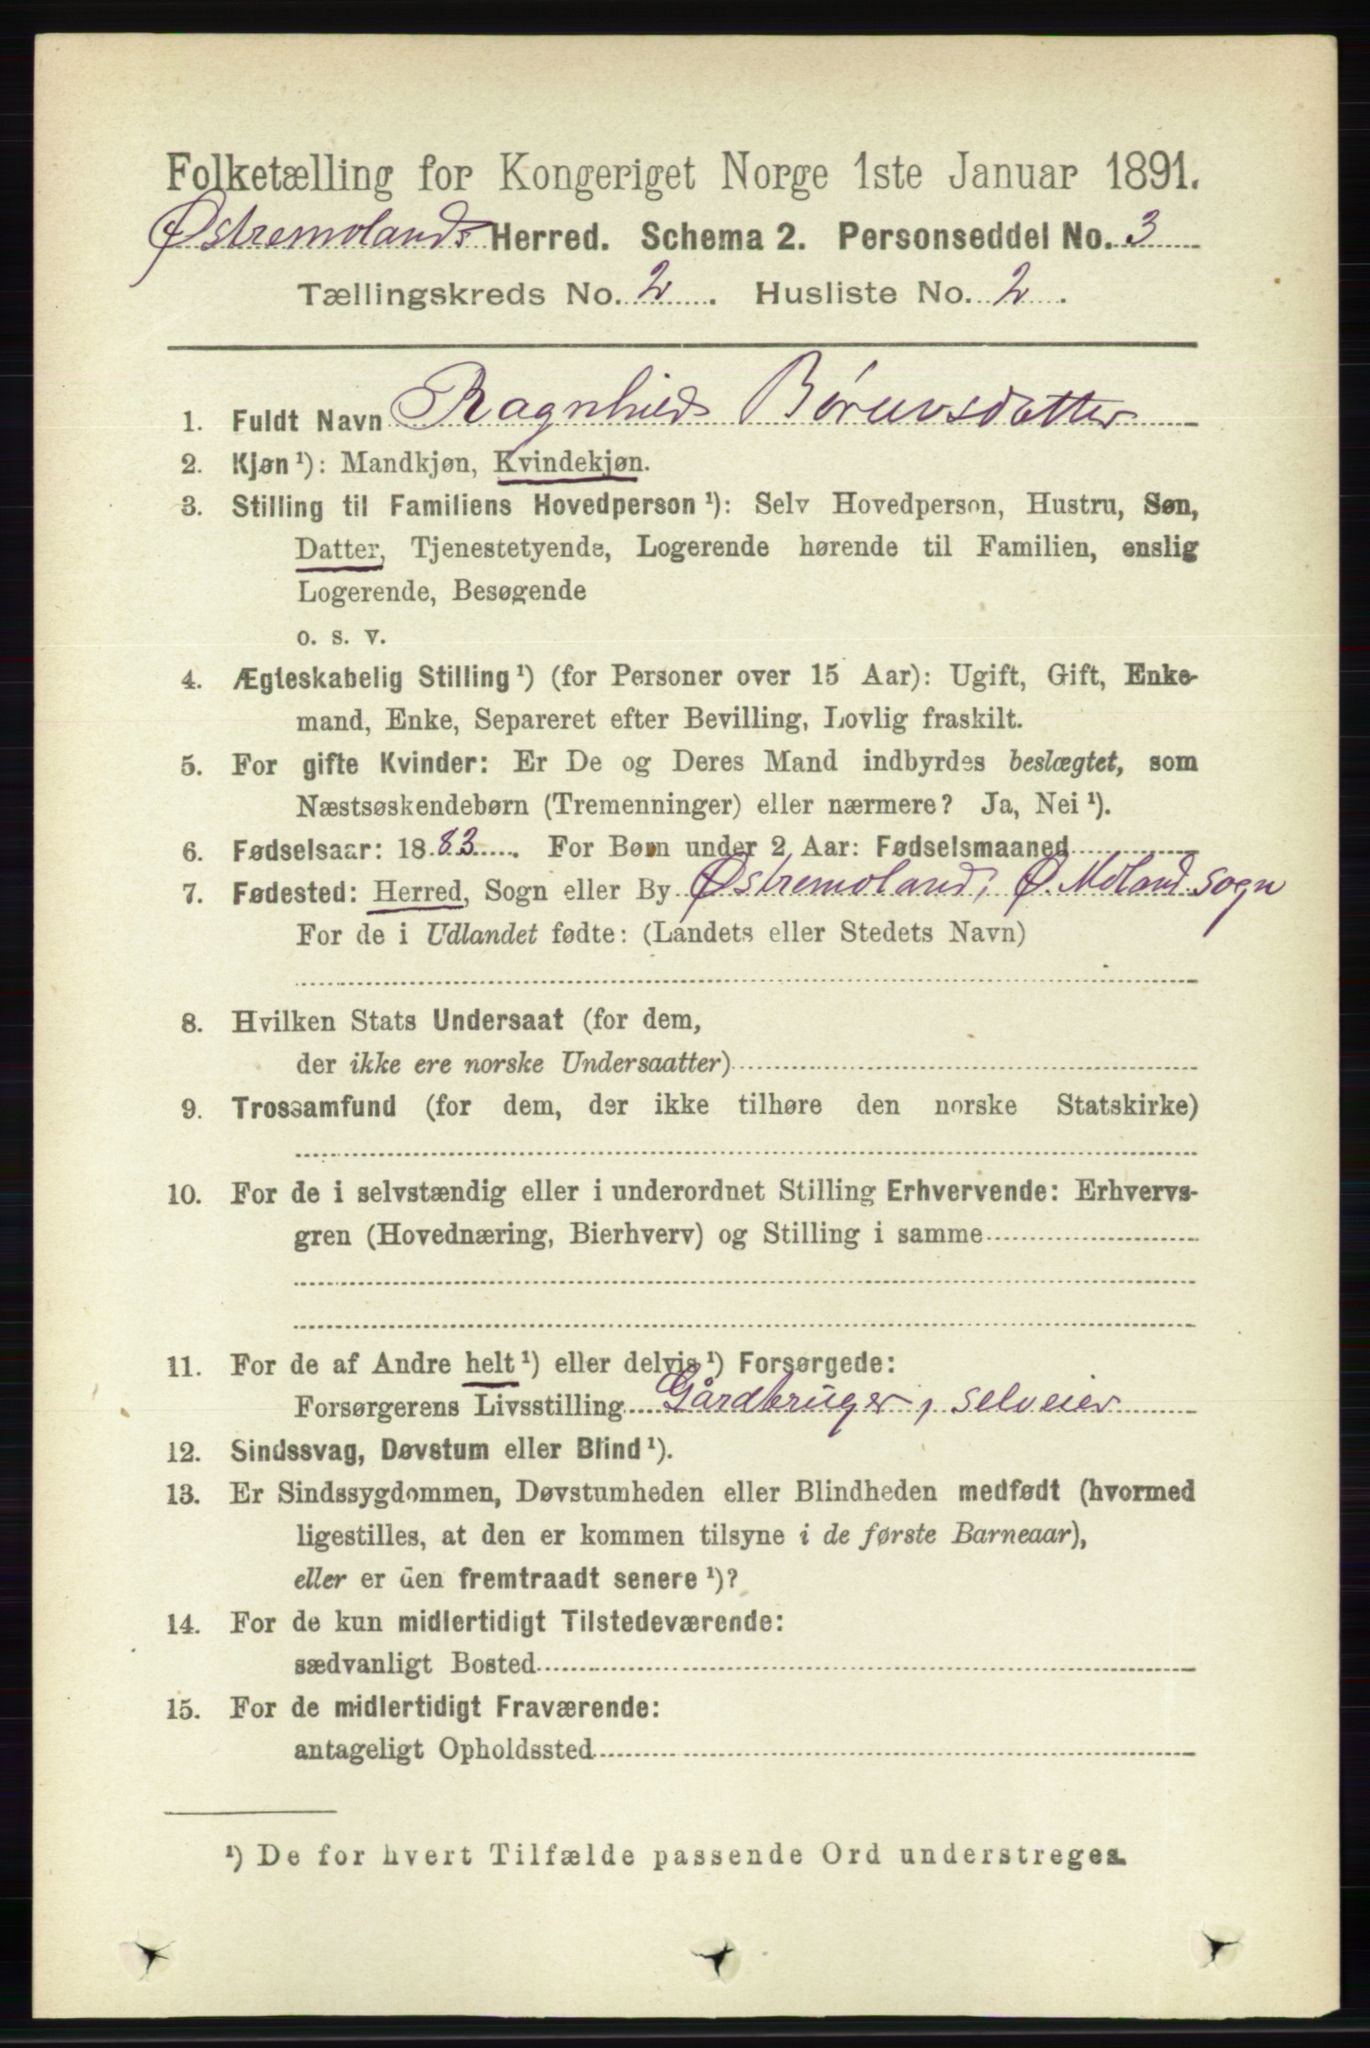 Folketælling for Kongeriget Norge 1ste Januar 1891.
Østremolands Herred. Schema 2. Personseddel No. 3
Tællingskreds No. 2. Husliste No. 2.
1. Fuldt Navn Ragnhild
2. Kjøn ¹): Mandkjøn, Kvindekjøn.
3. Stilling til Familiens Hovedperson ¹): Selv Hovedperson, Hustru, Søn,
Datter, Tjenestetyende, Logerende hørende til Familien, enslig
Logerende, Besøgende
o. s. v.
4. Ægteskabelig Stilling ¹) (for Personer over 15 Aar): Ugift, Gift, Enke-
mand, Enke, Separeret efter Bevilling, Lovlig fraskilt.
5. For gifte Kvinder: Er De og Deres Mand indbyrdes beslægtet, som
Næstsøskendebørn (Tremenninger) eller nærmere? Ja, Nei ¹).
6. Fødselsaar: 1883. For Børn under 2 Aar: Fødselsmaaned
7. Fødested: Herred, Sogn eller By Østremoland, Ø. Moland sogn
For de i Udlandet fødte: (Landets eller Stedets Navn)
8. Hvilken Stats Undersaat (for dem,
der ikke ere norske Undersaatter)
9. Trossamfund (for dem, der ikke tilhøre den norske Statskirke)
10. For de i selvstændig eller i underordnet Stilling Erhvervende: Erhvervs-
gren (Hovednæring, Bierhverv) og Stilling i samme
11. For de af Andre helt ¹) eller delvis ¹) Forsørgede:
Forsørgerens Livsstilling Gårdbruger, selveier
12. Sindssvag, Døvstum eller Blind ¹).
13. Er Sindssygdommen, Døvstumheden eller Blindheden medfødt (hvormed
ligestilles, at den er kommen tilsyne i de første Barneaar),
eller er den fremtraadt senere ¹)?
14. For de kun midlertidigt Tilstedeværende:
sædvanligt Bosted
15. For de midlertidigt Fraværende:
antageligt Opholdssted
¹) De for hvert Tilfælde passende Ord understreges.